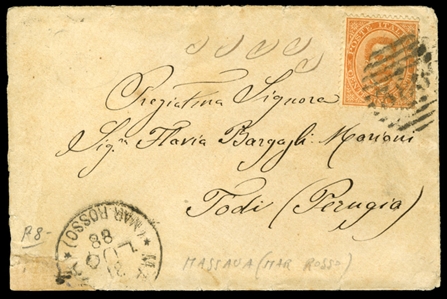 POSTE ITALIANE
Pregiatma Signora
Sig.ra Flavia Bargagli Mariani
Todi (Perugia)
R8-
(MAR ROSSO)
88
MASSAUA (MAR ROSSO)